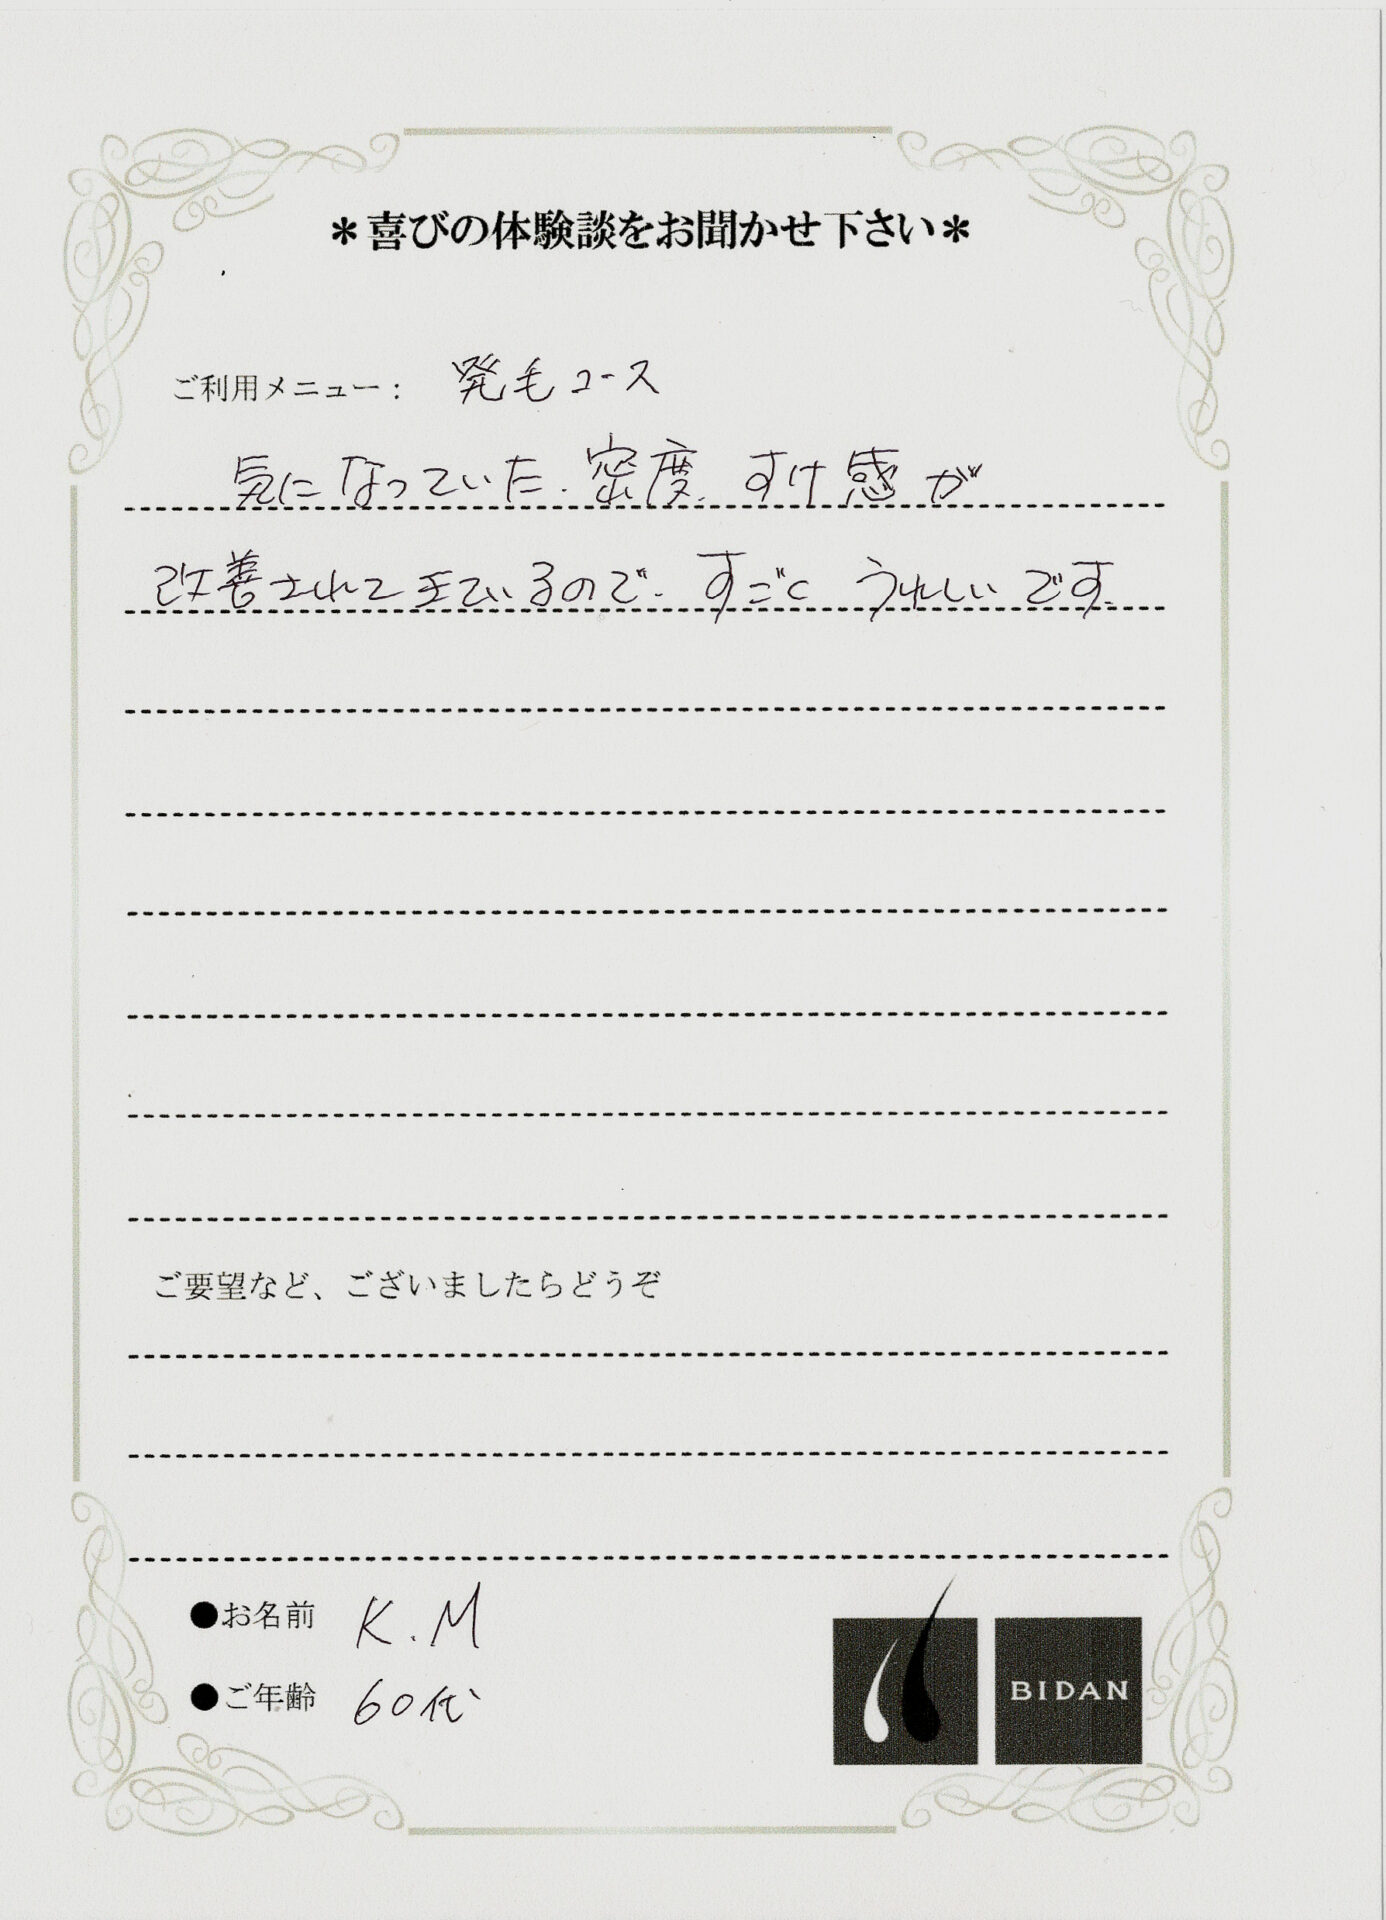 ＊喜びの体験談をお聞かせ下さい＊
ご利用メニュー： 発毛コース
気になっていた、密度、すけ感が
改善されてきているので、すごく うれしいです。
ご要望など、ございましたらどうぞ
●お名前 K.M
●ご年齢 60代
BIDAN